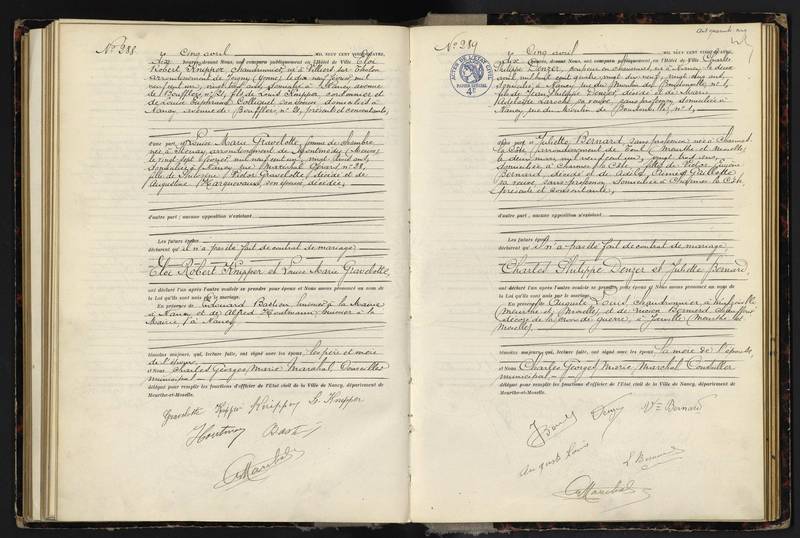 N° 288
Le Cinq avril MIL NEUF CENT VINGT QUATRE,
dix heures, devant Nous, ont comparu publiquement en l'Hôtel de Ville Eloi
Robert Knipper, chaudronnier, né à Villiers sur Tholon
arrondissement de Joigny (Yonne), le dix neuf février mil
neuf cent un, vingt trois ans, domicilié à Nancy avenue
de Boufflers, n° 21, fils de Louis Knipper, cordonnier et
de Louise son épouse, domiciliés à
Nancy, avenue de Boufflers, n° 21, présents et consentants,
d'une part; Louise Marie Gravelotte, femme de chambre
née à Stenay arrondissement de Montmédy (Meuse)
le vingt sept février mil neuf cent un, vingt trois ans,
domiciliée à Nancy, n° 38,
fille de Victor Gravelotte, décédé et de
Augustine son épouse, décédée,
d'autre part ; aucune opposition n'existant.
Les futurs époux
déclarent qu'il n'a pas été fait de contrat de mariage,
Eloi Robert Knipper et Louise Marie Gravelotte,
ont déclaré l'un après l'autre vouloir se prendre pour époux et Nous avons prononcé au nom de
la Loi qu'ils sont unis par le mariage.
En présence de Edouard Bastien, huissier à la Mairie
à Nancy et de Alfred Houtmann, huissier à la
Mairie, à Nancy
témoins majeurs, qui, lecture faite, ont signé avec les époux, les père et mère
de l'époux
et Nous Charles Georges Marie Marchal, Conseiller
municipal
délégué pour remplir les fonctions d'officier de l'Etat civil de la Ville de Nancy, département de
Meurthe-et-Moselle.
Gravelotte Knipper Knipper L. Knipper
N° 289
Le Cinq avril MIL NEUF CENT VINGT QUATRE,
dix heures, devant Nous, ont comparu publiquement en l'Hôtel de Ville Charles
Philippe Denzer, né à Nancy le deux
avril mil huit cent quatre vingt dix neuf, vingt deux ans,
domicilié à Nancy rue du Moulin de Boudonville, n° 1,
fils de Jean Philippe Denzer, décédé et de Marie
Adélaïde Laroche sa veuve, sans profession, domiciliée à
Nancy rue du Moulin de Boudonville, n° 1,
d'une part; Juliette Bernard, sans profession, née à Charmes
la Côte, arrondissement de Toul (Meurthe et Moselle)
le deux mars mil neuf cent un, vingt trois ans,
domiciliée à Charmes la Côte, fille de Victor Eugène
Bernard, décédé et de Guillotte
sa veuve, sans profession, domiciliée à Charmes la Côte,
présente et consentante,
d'autre part ; aucune opposition n'existant.
Les futurs époux
déclarent qu'il n'a pas été fait de contrat de mariage,
Charles Philippe Denzer et Juliette Bernard,
ont déclaré l'un après l'autre vouloir se prendre pour époux et Nous avons prononcé au nom de
la Loi qu'ils sont unis par le mariage.
En présence de Auguste Louis, chaudronnier, à
(Meurthe et Moselle), et de Bernard chauffeur
décoré de la croix de guerre, à Joeuville (Meurthe et
Moselle),
témoins majeurs, qui, lecture faite, ont signé avec les époux, la mère de l'épouse,
et Nous Charles Georges Marie Marchal Conseiller
municipal,
délégué pour remplir les fonctions d'officier de l'Etat civil de la Ville de Nancy, département de
Meurthe-et-Moselle.
Vve Bernard
Auguste Louis